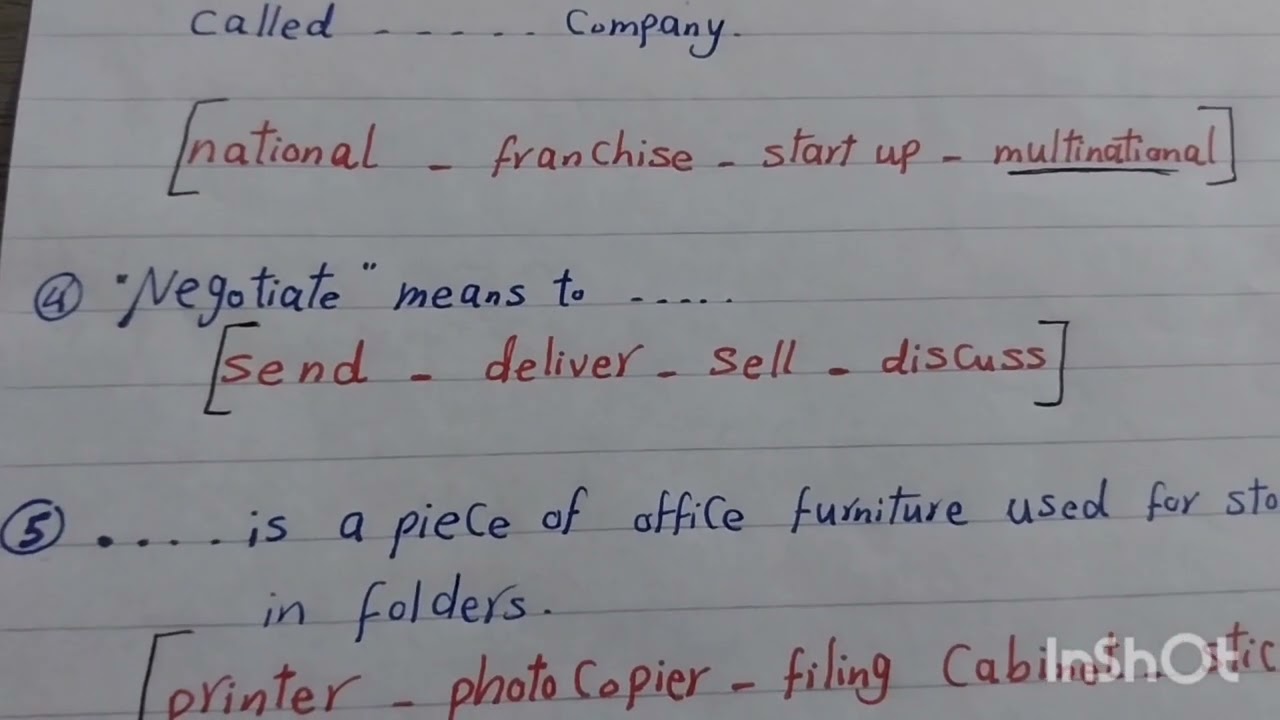 called ------ Company.
[national - franchise - start up - multinational]
④ "Negotiate" means to .....
[send - deliver - sell - discuss]
⑤ ..... is a piece of office furniture used for sto
in folders.
[printer - photo Copier - filing Cabinet
InShOt